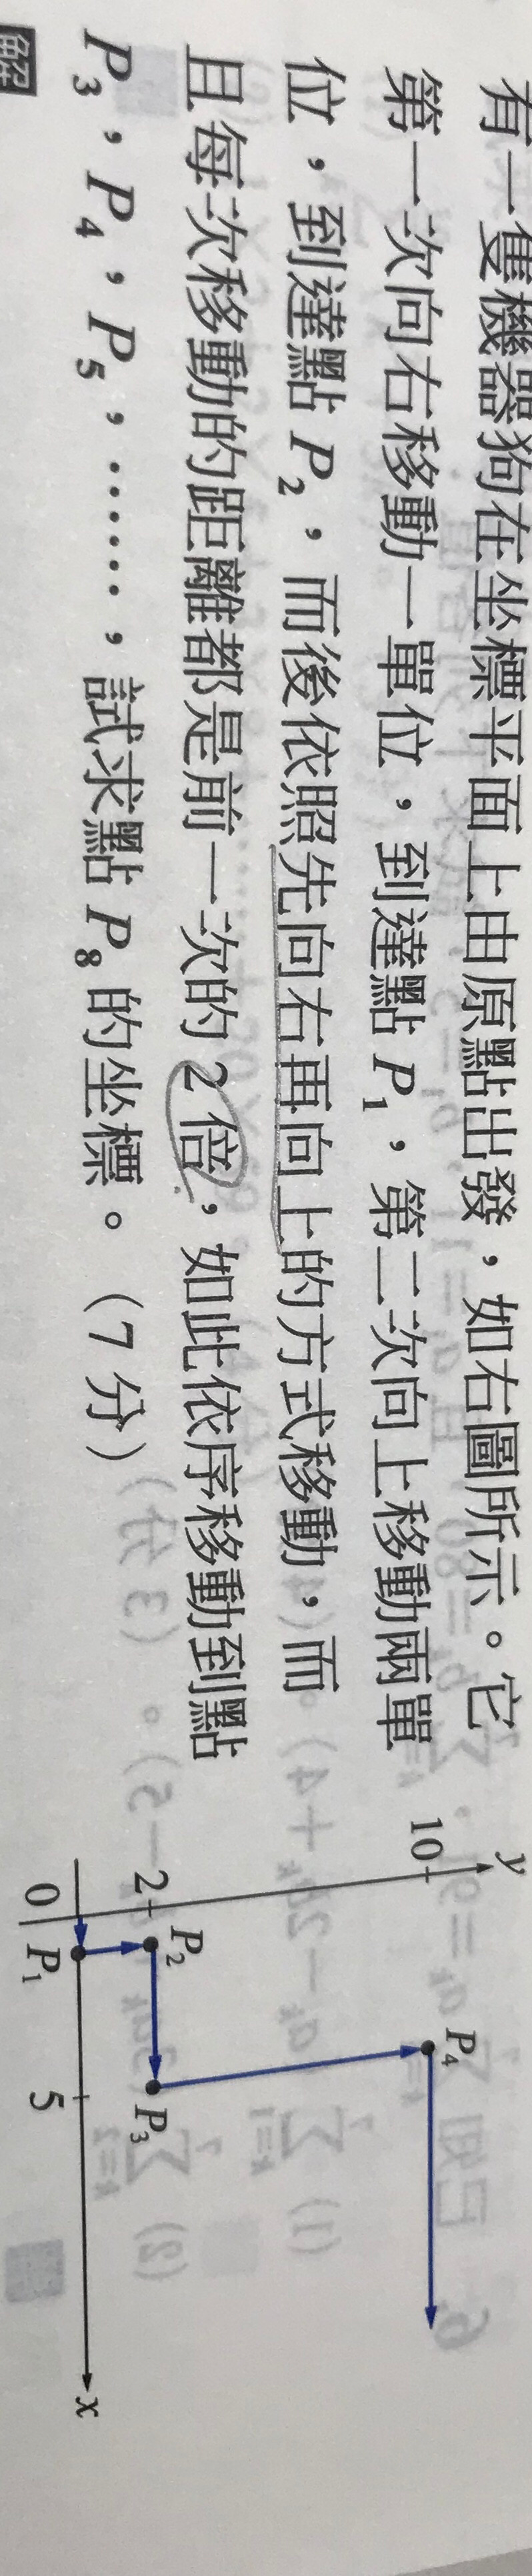 有一隻機器狗在坐標平面上由原點出發，如右圖所示。它
第一次向右移動一單位，到達點 P₁，第二次向上移動兩單
位，到達點 P₂，而後依照先向右再向上的方式移動，而
且每次移動的距離都是前一次的 2 倍，如此依序移動到點
P₃，P₄，P₅，……，試求點 P₈ 的坐標。（7 分）
解
y
10
P₄
2
P₂
P₃
0
P₁
5
x